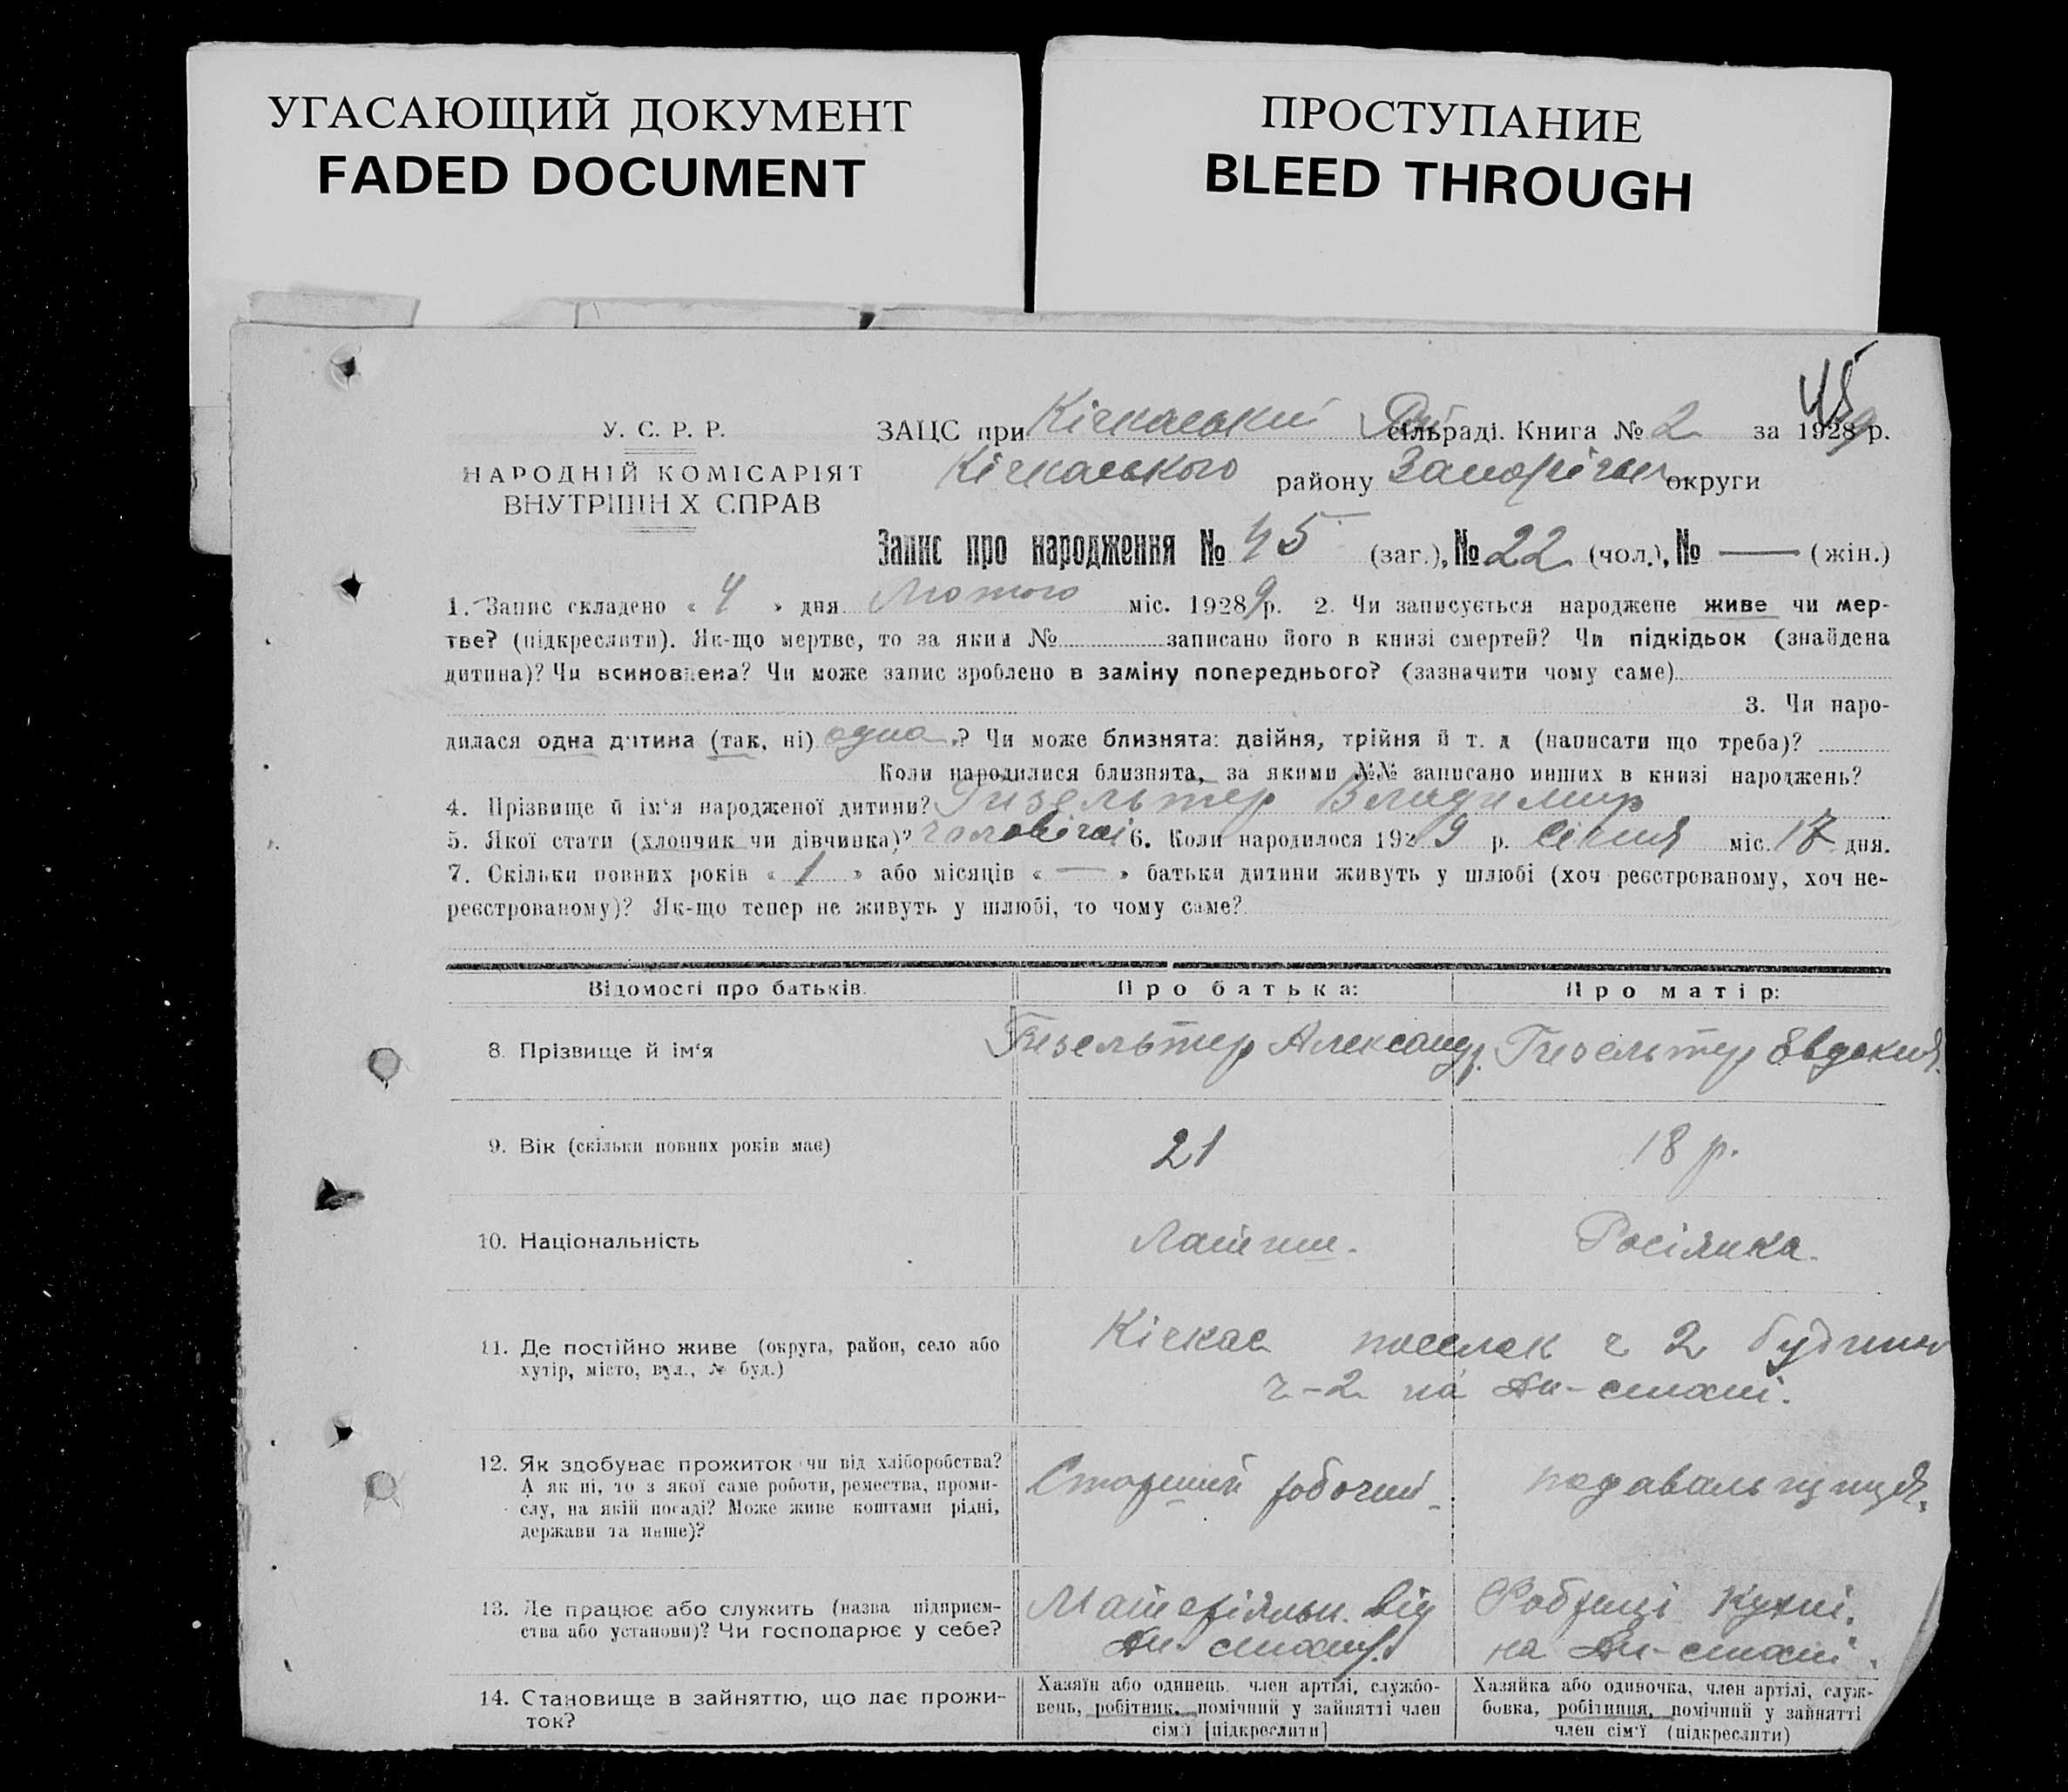 УГАСАЮЩИЙ ДОКУМЕНТ
FADED DOCUMENT
ПРОСТУПАНИЕ
BLEED THROUGH
45
У. С. Р. Р.
НАРОДНІЙ КОМІСАРІЯТ
ВНУТРІШН Х СПРАВ
ЗАЦС при Кічкаський сільраді. Книга № 2 за 1929 р.
Кічкаського району Запоріжськ округи
Запис про народження № 45 (заг.), № 22 (чол.), № — (жін.)
1. Запис складено « 4 » дня Лютого міс. 1928 9 р. 2. Чи записується народжене живе чи мер-
тве? (підкреслити). Як-що мертве, то за яким № записано його в книзі смертей? Чи підкідьок (знайдена
дитина)? Чи всиновлена? Чи може запис зроблено в заміну попереднього? (зазначити чому саме)
3. Чи наро-
дилася одна дитина (так, ні) одна ? Чи може близнята: двійня, трійня й т. д (написати що треба)?
Коли народилися близнята, за якими №№ записано инших в книзі народжень?
4. Прізвище й ім‘я народженої дитини? Гизельтер Владимир
5. Якої стати (хлопчик чи дівчинка)? чоловічої 6. Коли народилося 1929 р. січня міс. 17 дня.
7. Скільки повних років « 1 » або місяців « — » батьки дитини живуть у шлюбі (хоч реєстрованому, хоч не-
реєстрованому)? Як-що тепер не живуть у шлюбі, то чому саме?
Відомості про батьків.
Про батька:
Про матір:
8. Прізвище й ім‘я
Гизельтер Александр.
Гизельтер Євдокия.
9. Вік (скільки повних років має)
21
18 р.
10. Національність
Латиш.
Росіянка.
11. Де постійно живе (округа, район, село або
хутір, місто, вул., № буд.)
Кічкас поселок ч 2 будинок
ч-2 на
12. Як здобуває прожиток чи від хліборобства?
А як ні, то з якої саме роботи, ремества, проми-
слу, на якій посаді? Може живе коштами рідні,
держави та инше)?
Старший робочий
подавальщиця.
13. Де працює або служить (назва підприєм-
ства або установи)? Чи господарює у себе?
Матеріяльн. від
Фабриці Кухні.
на
14. Становище в зайняттю, що дає прожи-
ток?
Хазяїн або одинець. член артілі, службо-
вець, робітник, помічний у зайнятті член
сім‘ї [підкреслити]
Хазяйка або одиночка, член артілі, служ-
бовка, робітниця, помічний у зайнятті
член сім‘ї (підкреслити)